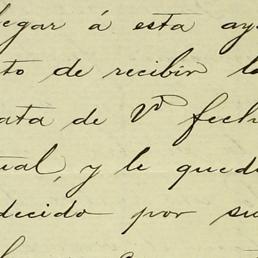 legar á esta ay
to de recibir l
ata de Vd fech
ual, y le qued
decido por su